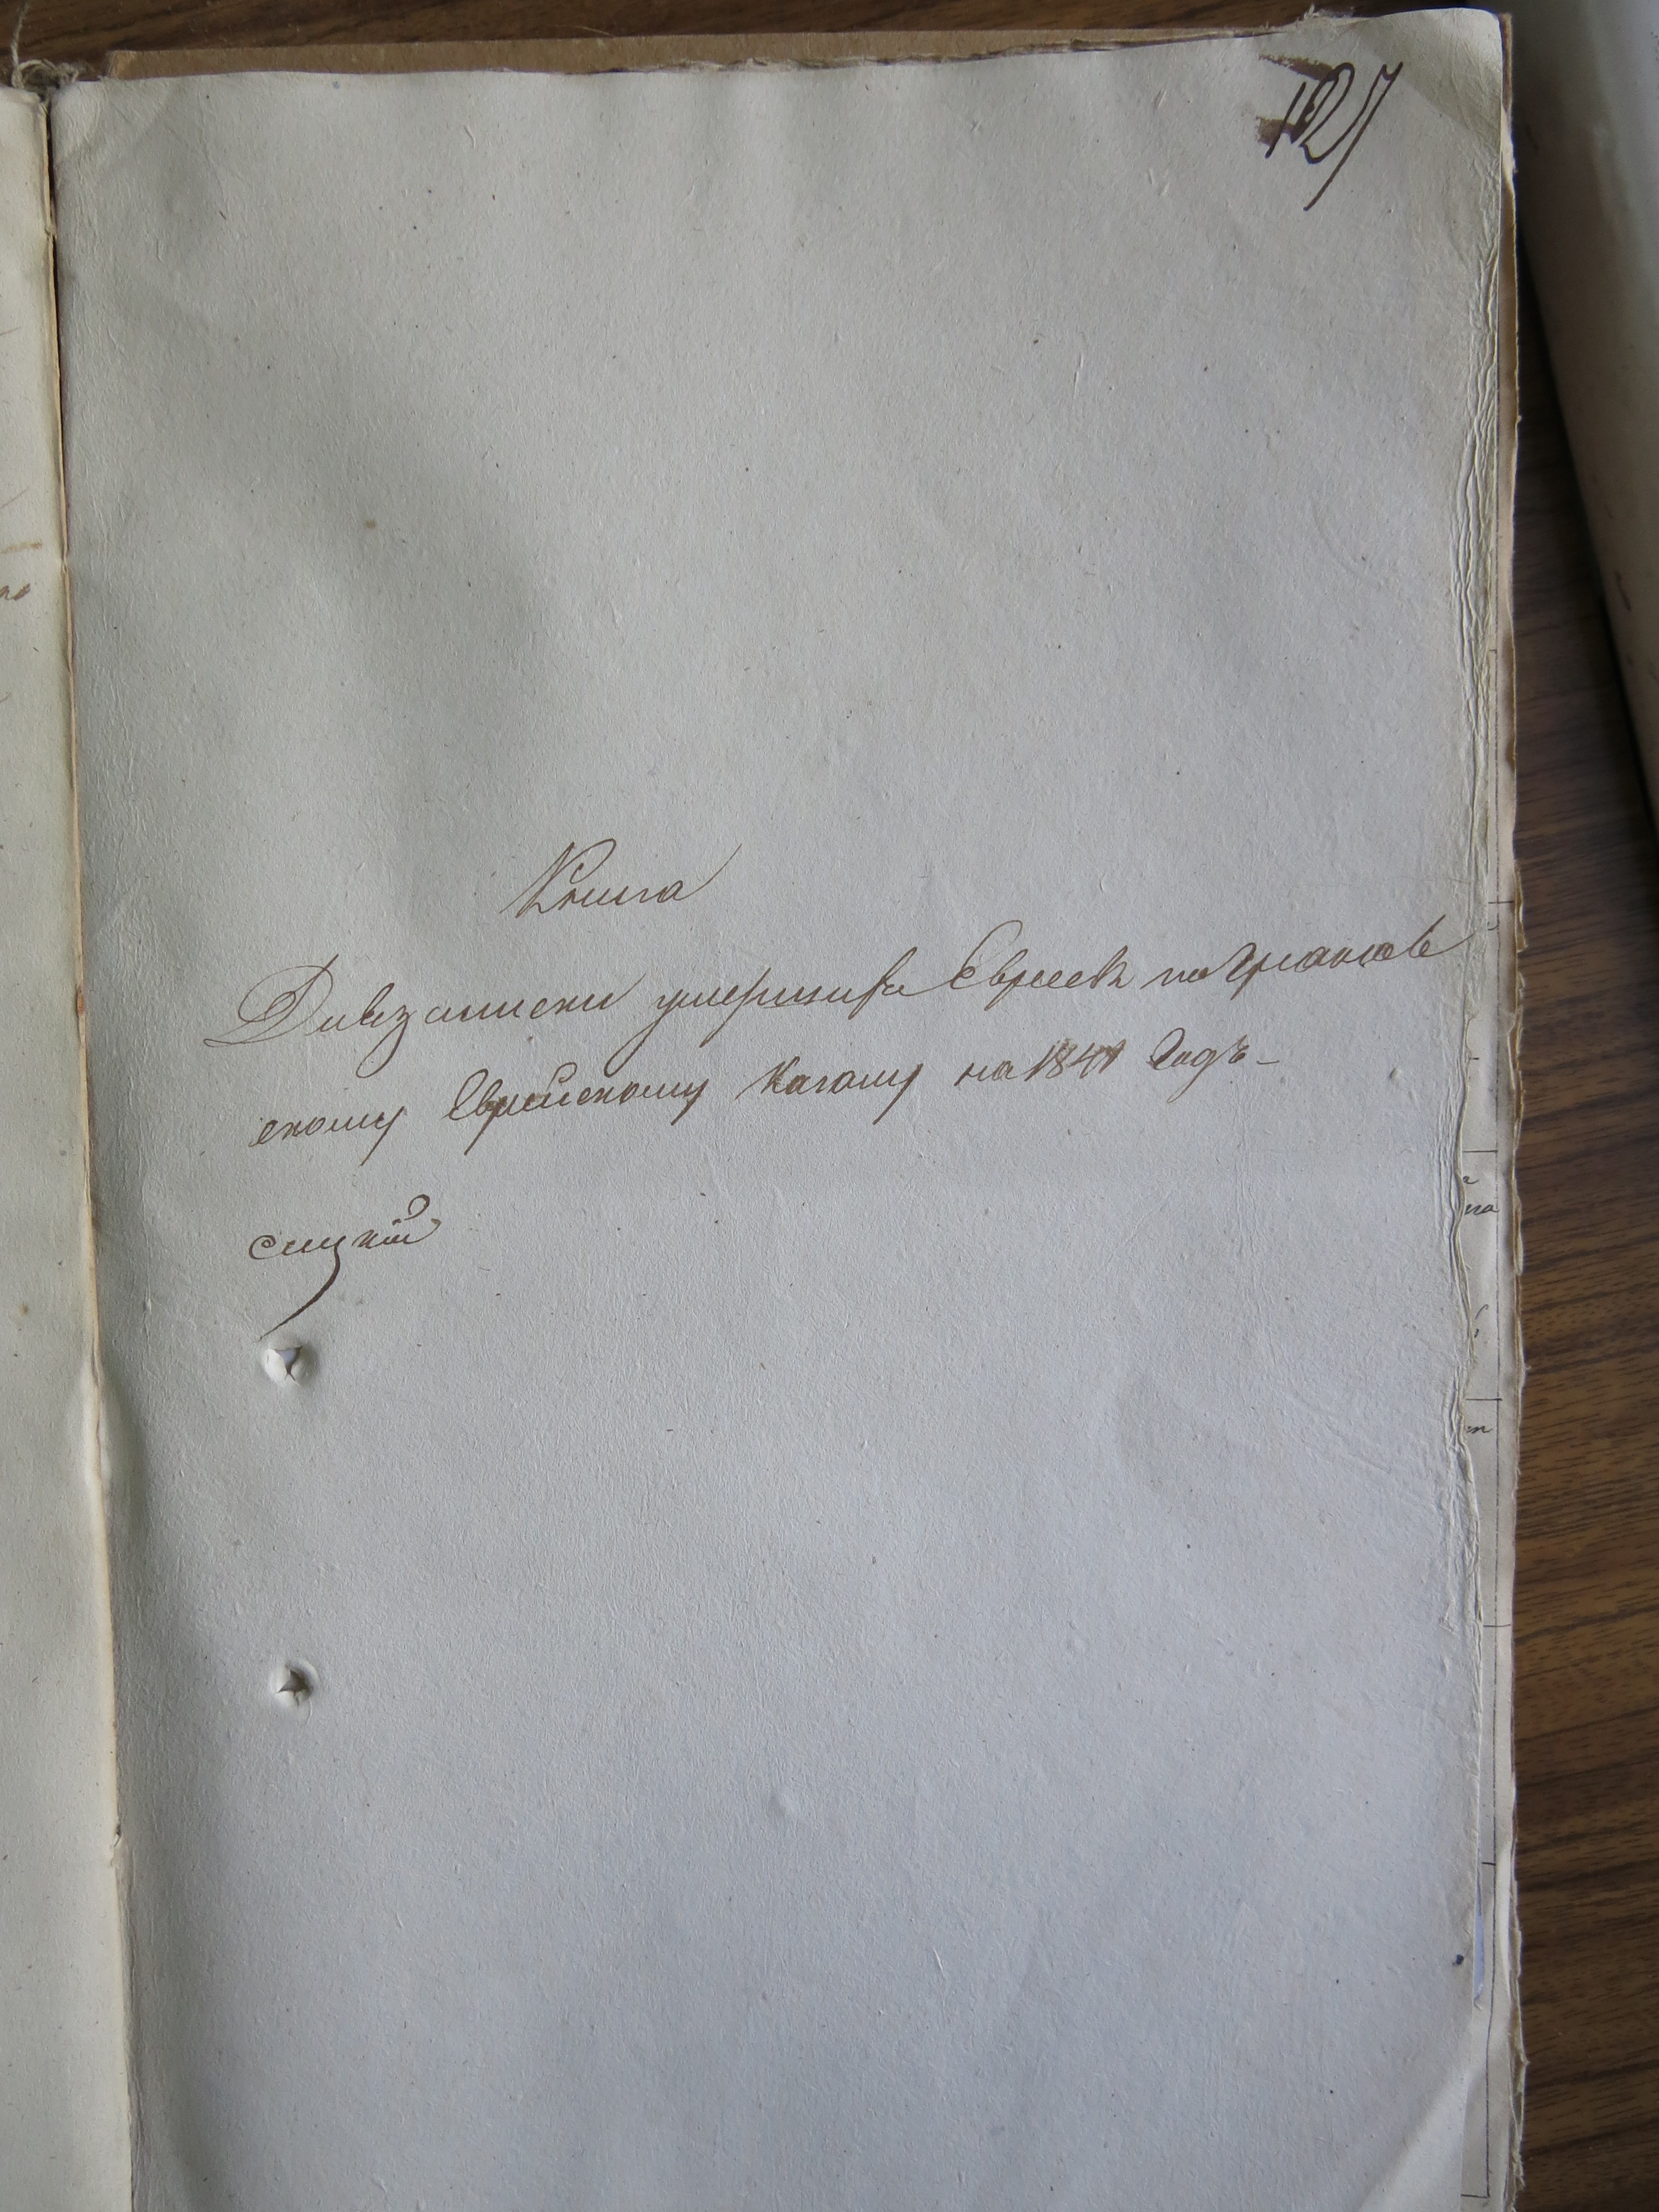 127
Книга
Для записки умершихъ Евреевъ по
скому Еврейскому Кагалу на 1841 Годъ –